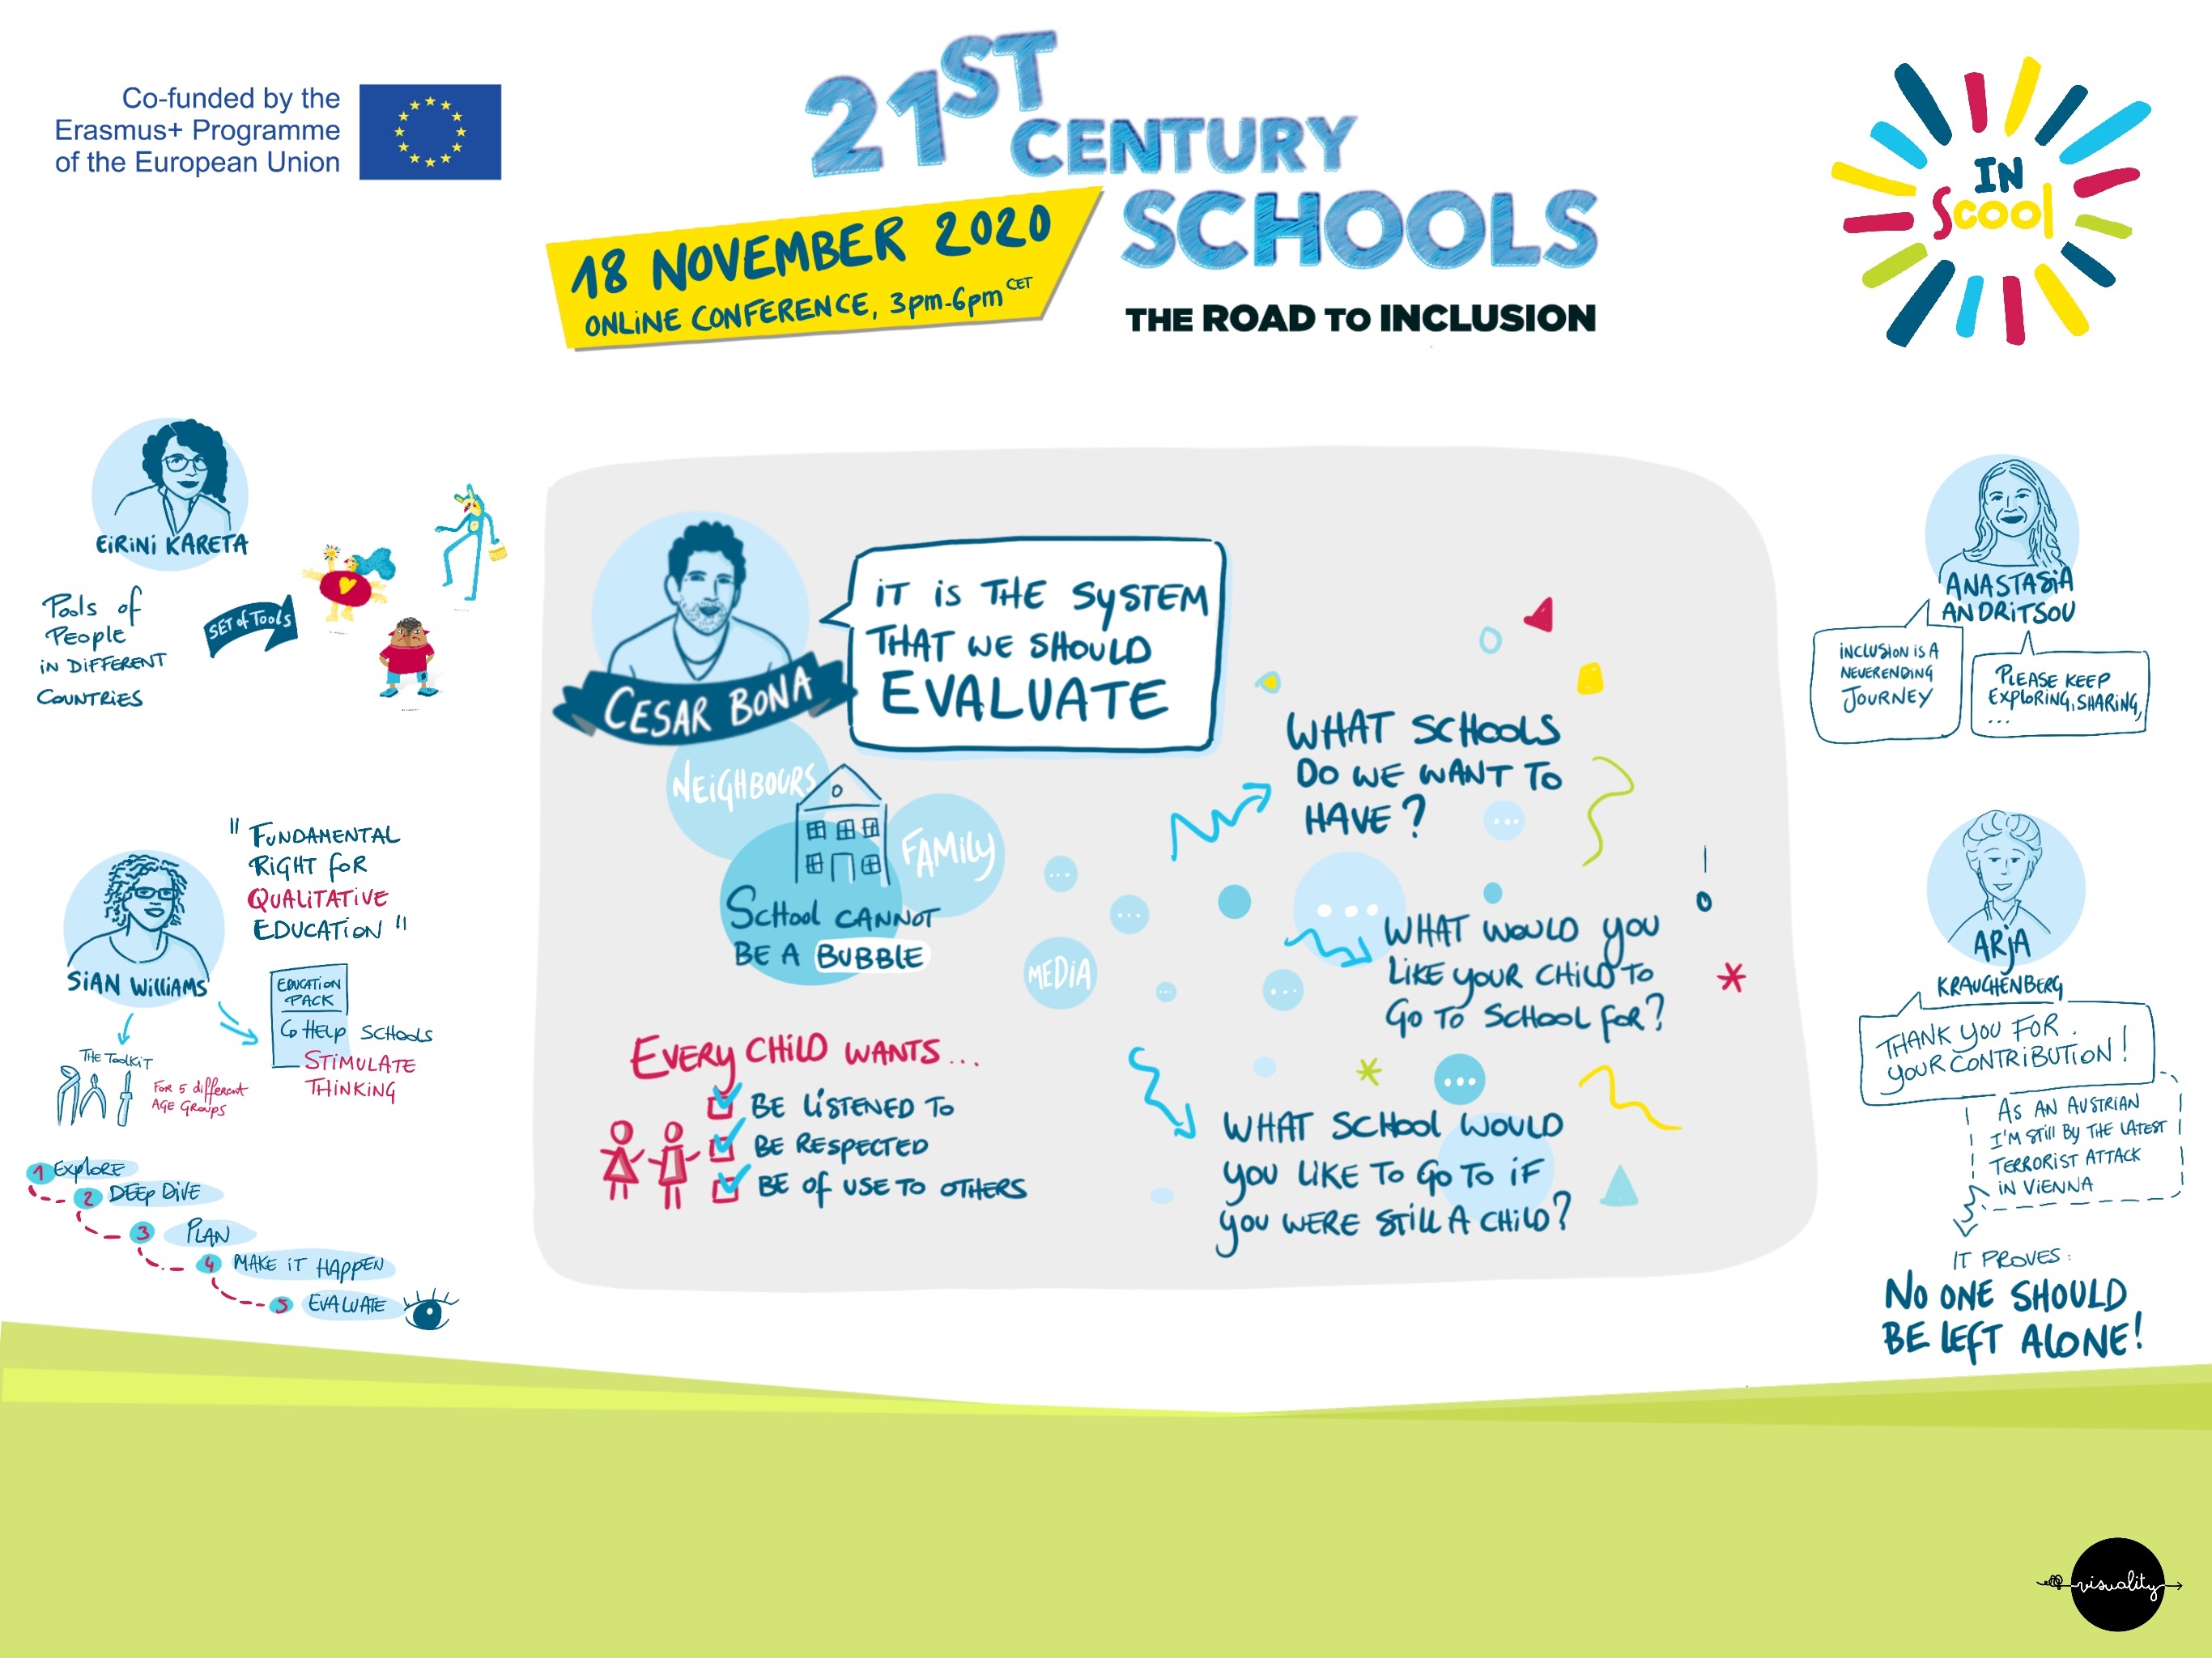 Co-funded by the
Erasmus+ Programme
of the European Union
21ST
CENTURY
SCHOOLS
18 NOVEMBER 2020
ONLINE CONFERENCE, 3pm-6pm CET
THE ROAD TO INCLUSION
IN
Scool
EIRINI KARETA
Pools of
People
IN DIFFERENT
COUNTRIES
SET of Tools
"FUNDAMENTAL
RIGHT FOR
QUALITATIVE
EDUCATION"
SIAN WILLIAMS
EDUCATION
PACK
HELP SCHOOLS
STIMULATE
THINKING
THE ToolKIT
FOR 5 different
AGE GROUPS
1 EXPLORE
2 DEEP DIVE
3 PLAN
4 MAKE IT HAPPEN
5 EVALUATE
CESAR BONA
IT IS THE SYSTEM
THAT WE SHOULD
EVALUATE
NEIGHBOURS
FAMILY
SCHOOL CANNOT
BE A BUBBLE
MEDIA
EVERY CHILD WANTS...
BE LISTENED TO
BE RESPECTED
BE OF USE TO OTHERS
WHAT SCHOOLS
DO WE WANT TO
HAVE?
WHAT WOULD YOU
LIKE YOUR CHILD TO
GO TO SCHOOL FOR?
WHAT SCHOOL WOULD
YOU LIKE TO GO TO IF
YOU WERE STILL A CHILD?
ANASTASIA
ANDRITSOU
INCLUSION IS A
NEVERENDING
JOURNEY
PLEASE KEEP
EXPLORING, SHARING,
...
ARJA
KRAUCHENBERG
THANK YOU FOR
YOUR CONTRIBUTION!
AS AN AUSTRIAN
I'M STILL BY THE LATEST
TERRORIST ATTACK
IN VIENNA
IT PROVES:
NO ONE SHOULD
BE LEFT ALONE!
visuality